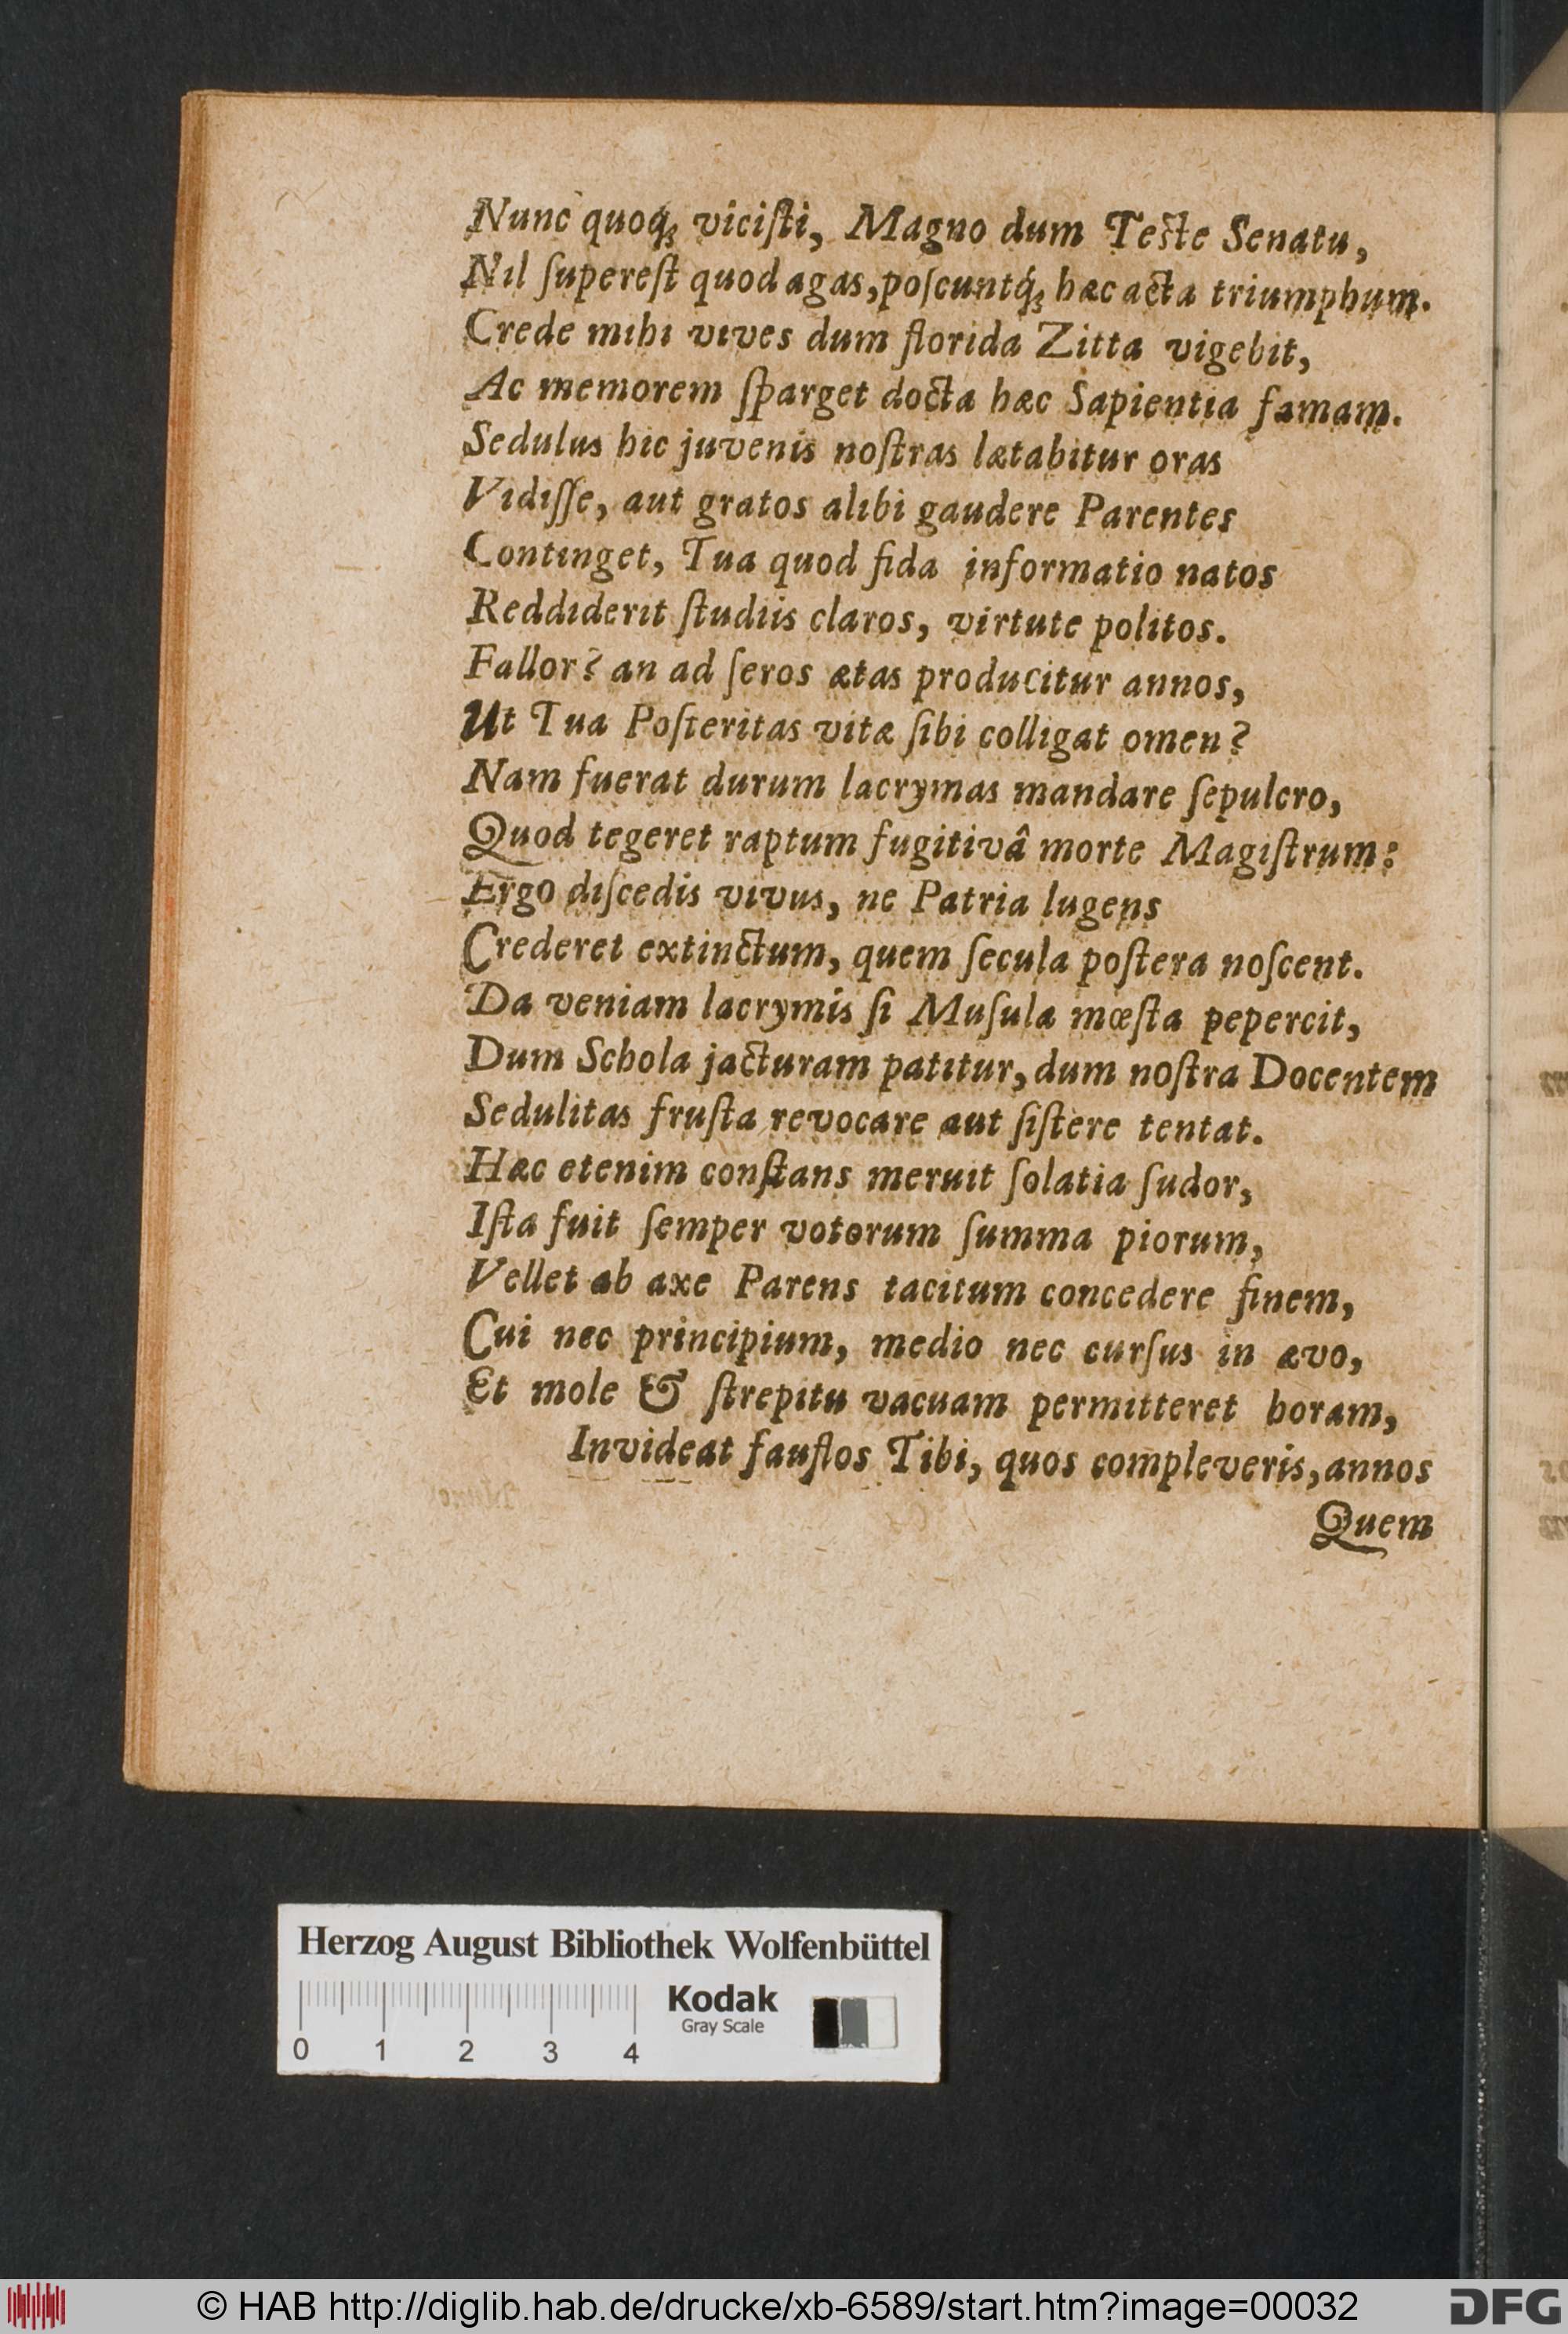 Nunc quoq́; viciſti, Magno dum Teſte Senatu,
Nil ſupereſt quod agas, poſcuntq́; hæc acta triumphum.
Crede mihi vives dum florida Zitta vigebit,
Ac memorem ſparget docta hæc Sapientia famam.
Sedulus hic juvenis noſtras lætabitur oras
Vidiſſe, aut gratos alibi gaudere Parentes
Continget, Tua quod fida informatio natos
Reddiderit ſtudiis claros, virtute politos.
Fallor? an ad ſeros ætas producitur annos,
Ut Tua Poſteritas vitæ ſibi colligat omen?
Nam fuerat durum lacrymas mandare ſepulcro,
Quod tegeret raptum fugitivâ morte Magiſtrum:
Ergo diſcedis vivus, ne Patria lugens
Crederet extinctum, quem ſecula poſtera noſcent.
Da veniam lacrymis ſi Muſula mœſta pepercit,
Dum Schola jacturam patitur, dum noſtra Docentem
Sedulitas fruſta revocare aut ſiſtere tentat.
Hæc etenim conſtans meruit ſolatia ſudor,
Iſta fuit ſemper votorum ſumma piorum,
Vellet ab axe Parens tacitum concedere finem,
Cui nec principium, medio nec curſus in ævo,
Et mole & ſtrepitu vacuam permitteret horam,
Invideat fauſtos Tibi, quos compleveris, annos
Quem
Herzog August Bibliothek Wolfenbüttel
Kodak
Gray Scale
0 1 2 3 4
© HAB http://diglib.hab.de/drucke/xb-6589/start.htm?image=00032
DFG